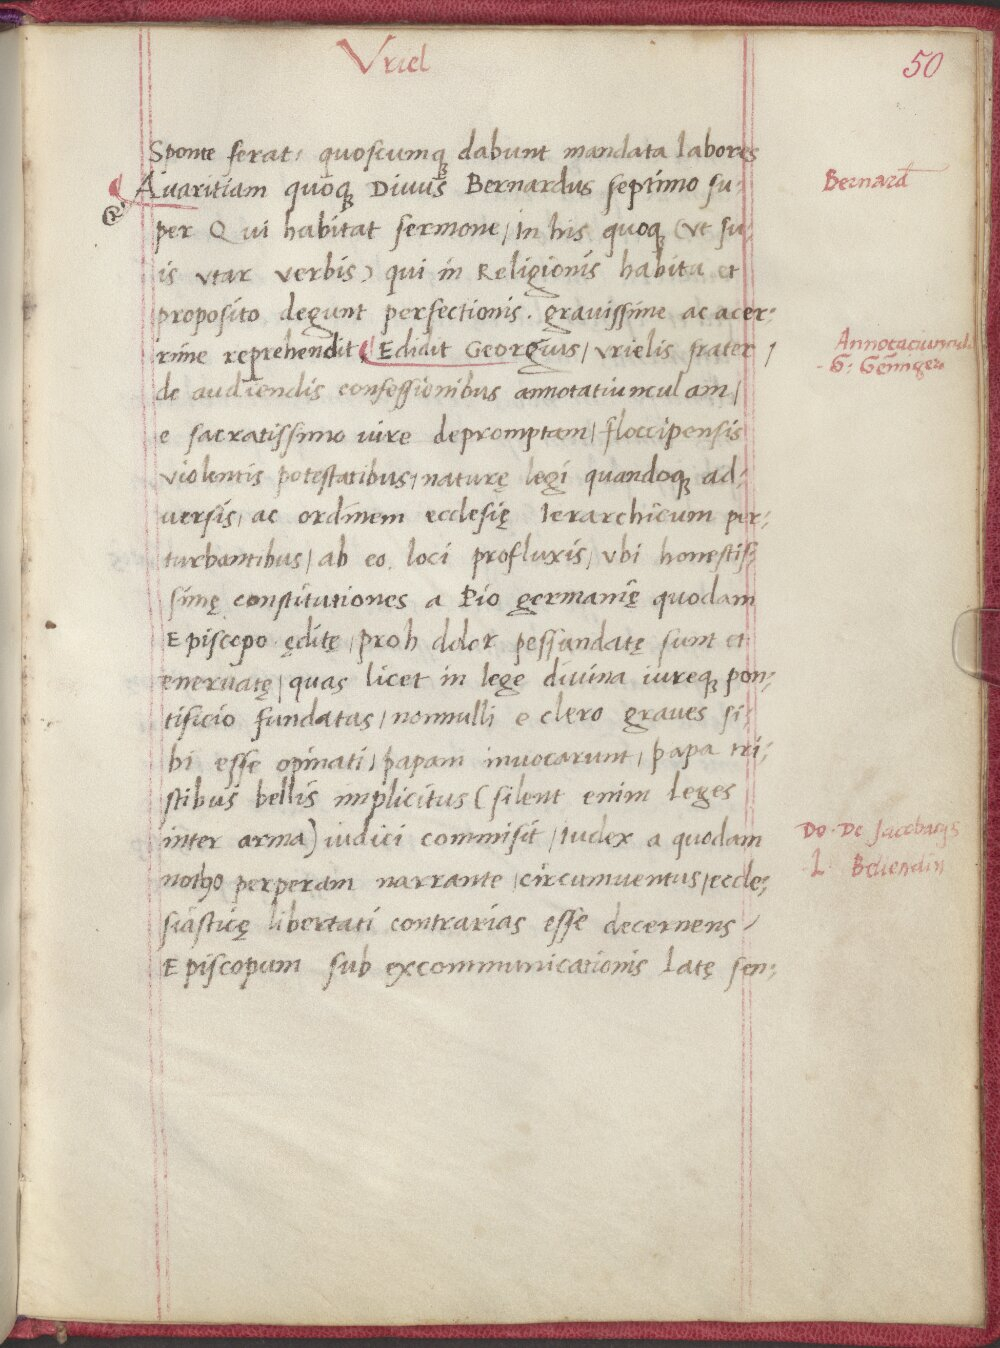 Vriel
50
Sponte ferat, quoscumqꝫ dabunt mandata labores
Auaritiam quoqꝫ Diuus Bernardus septimo su-
per Qui habitat sermone / in his quoqꝫ (vt su-
is vtar verbis) qui in Religionis habitu et
proposito degunt perfectionis. grauissime ac acer-
rime reprehendit, Edidit Georgius / vrielis frater /
de audiendis confessionibus annotatiunculam /
e sacratissimo iure depromptam / floccipensis
violentis potestatibus / naturę legi quandoqꝫ ad-
uersis / ac ordinem ecclesię Ierarchicum per-
turbantibus / ab eo loci profluxis / vbi honestis-
simę constitutiones a Pio germanię quodam
Episcopo ęditę / proh dolor pessundatę sunt et
eneruatę / quas licet in lege diuina iureqꝫ pon-
tificio fundatas / nonnulli e clero graues si-
bi esse opinati / papam inuocarunt / papa tri-
stibus bellis implicitus (silent enim leges
inter arma) iudici commisit / Iudex a quodam
notho perperam narrante / circumuentus / eccle-
siasticę libertati contrarias esse decernens /
Episcopum sub excommunicationis latę sen-
Bernard
Annotaciuncula
G: Gemiger
Do. De Jacobatijs
L Behendin